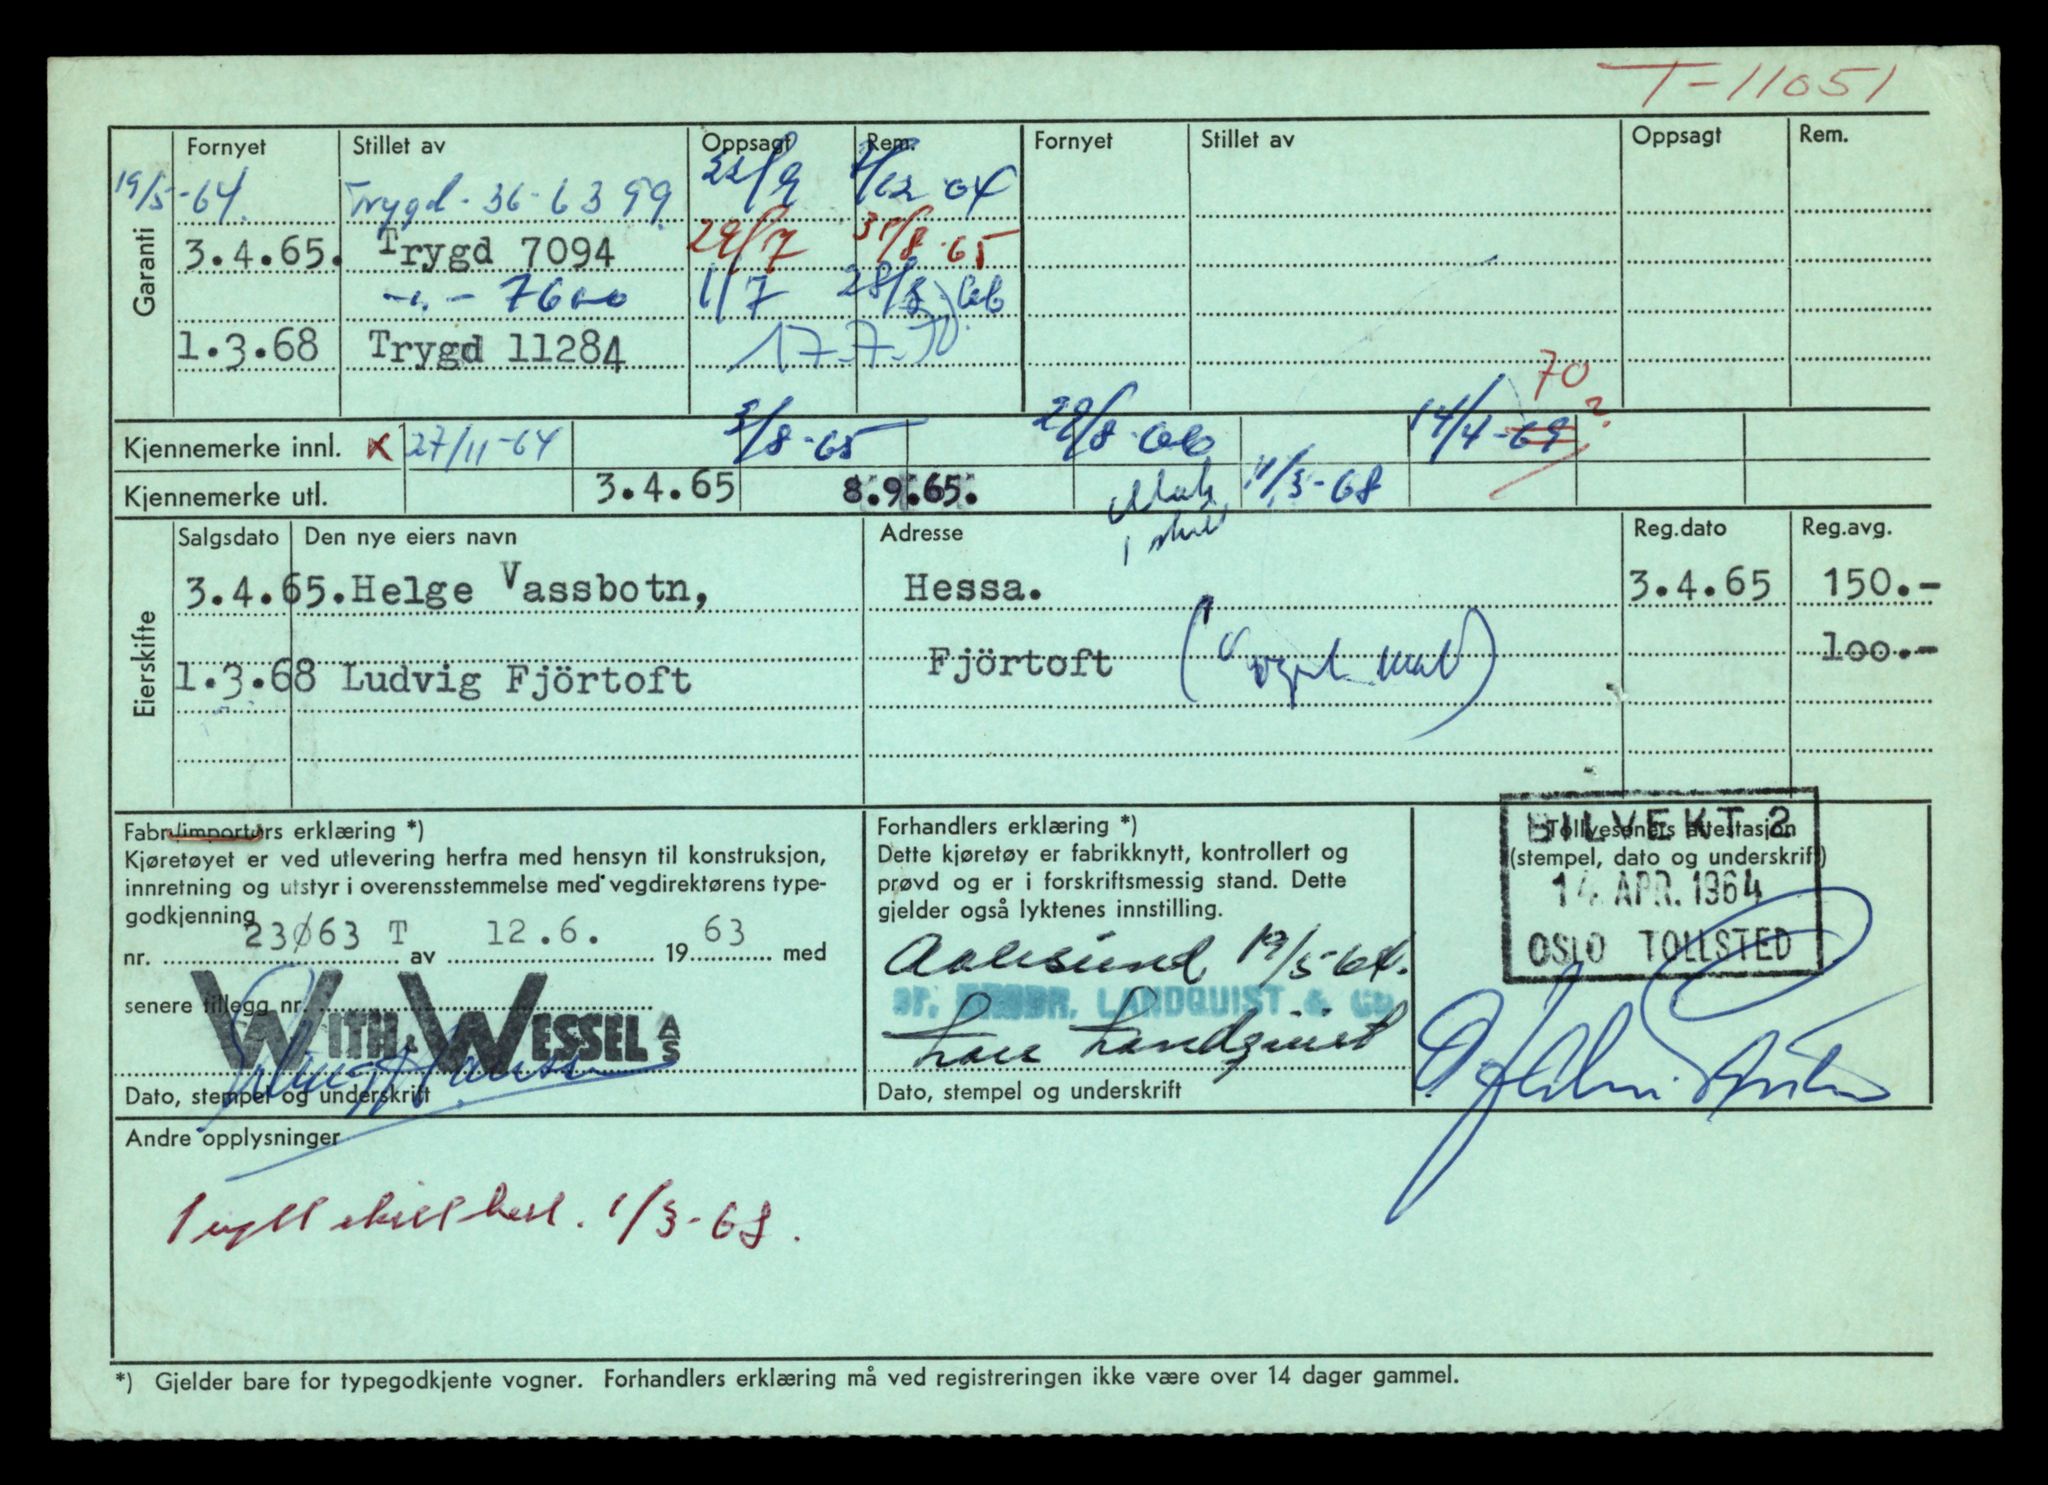 T-11051
Fornyet Stillet av Oppsagt Rem. Fornyet Stillet av Oppsagt Rem.
Garanti
19/5-64. Trygd - 36-6399. 22/9
3.4.65. Trygd 7094 29/7 31/8-65
-"- 1/7 28/8
1.3.68 Trygd 11284 17-7-70
Kjennemerke innl. x 27/11-64 3/8-65 29/8-66 14/4-69 70 ?
Kjennemerke utl. 3.4.65 8.9.65. 1/3-68
Eierskifte
Salgsdato Den nye eiers navn Adresse Reg.dato Reg.avg.
3.4.65. Helge Vassbotn, Hessa. 3.4.65 150.-
1.3.68 Ludvig Fjörtoft Fjörtoft 100.-
Fabr./importørs erklæring *)
Kjøretøyet er ved utlevering herfra med hensyn til konstruksjon,
innretning og utstyr i overensstemmelse med vegdirektørens type-
godkjenning
nr. 23063 T av 12.6. 1963 med
senere tillegg nr.
WITH & WESSEL A/S
Dato, stempel og underskrift
Forhandlers erklæring *)
Dette kjøretøy er fabrikknytt, kontrollert og
prøvd og er i forskriftsmessig stand. Dette
gjelder også lyktenes innstilling.
Aalesund 19/5-64.
LANDQUIST & Co
Landquist
Dato, stempel og underskrift
BILVEKT 2
Tollvesenets attestasjon
(stempel, dato og underskrift)
14 APR. 1964
OSLO TOLLSTED
Andre opplysninger
1/3-68.
*) Gjelder bare for typegodkjente vogner. Forhandlers erklæring må ved registreringen ikke være over 14 dager gammel.